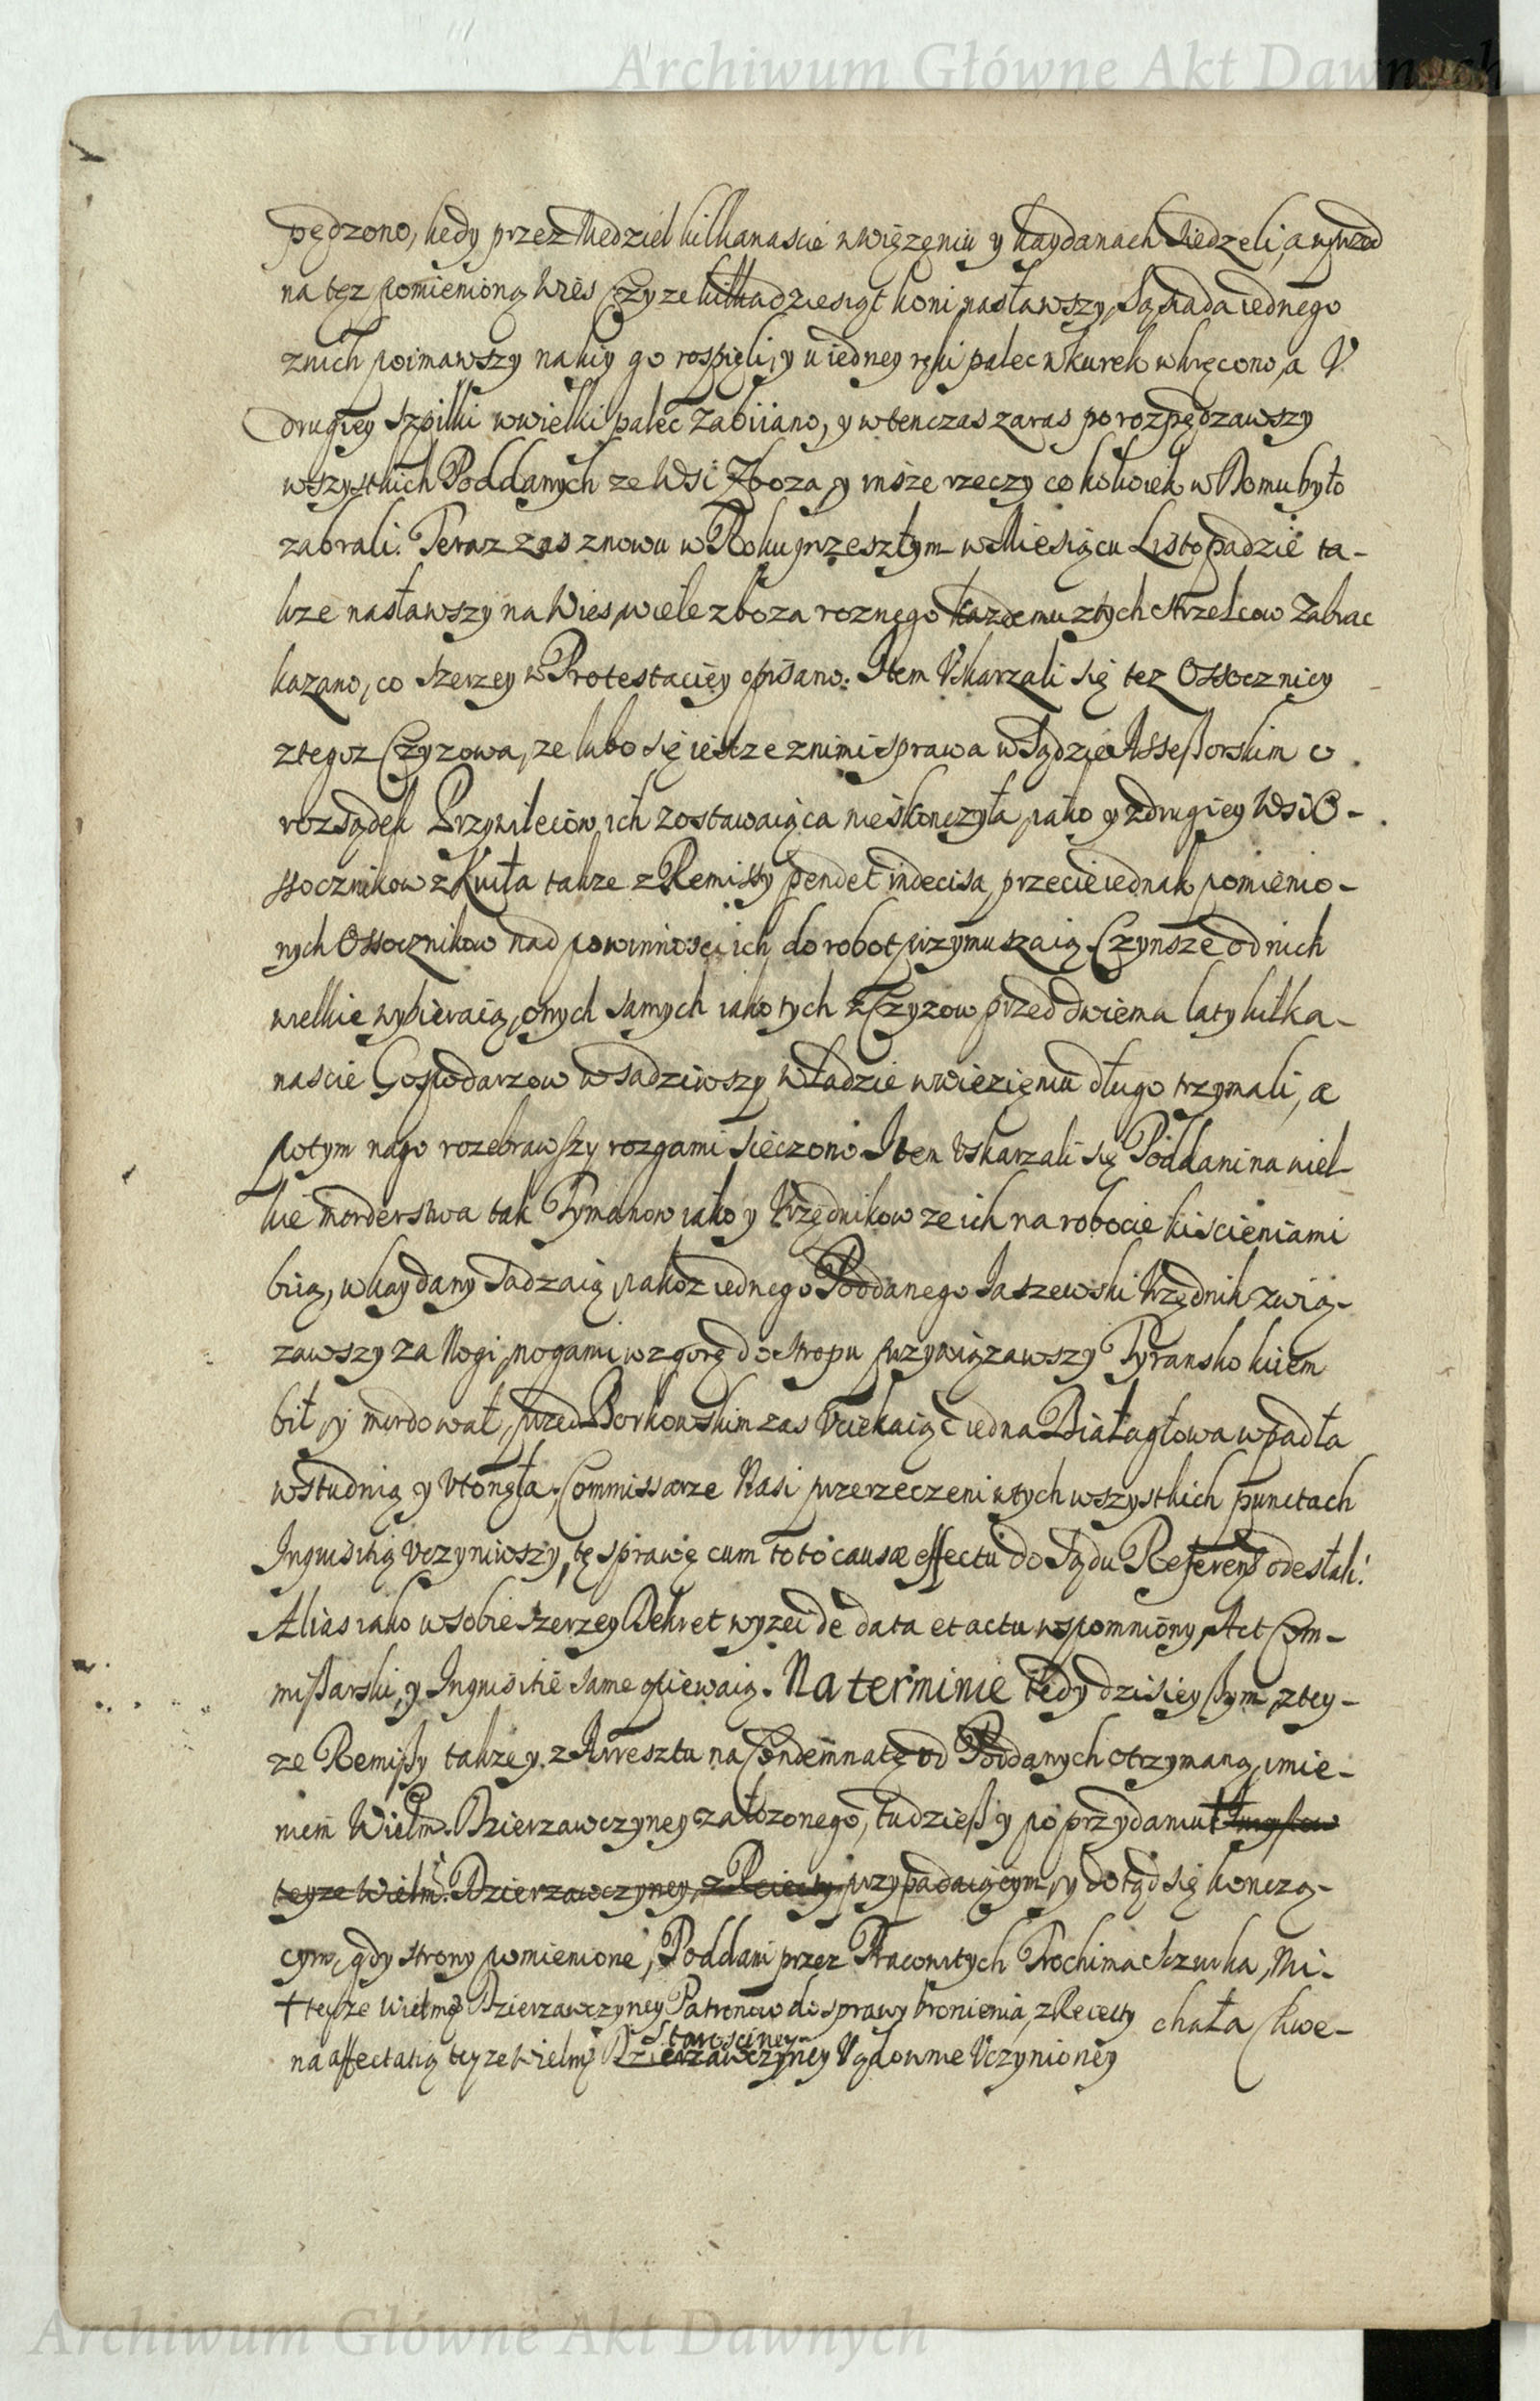 Archiwum Główne Akt Dawnych
pędzono, kędy przez Niedziel kilkanascie w więzęniu y kaydanach siedzeli, a wprzod
na tęz pomienioną Wies Czyze kilkadziesiąt koni nasławszy, Sąsiada iednego
znich poimawszy na kiy go rospięli, y u iedney ręki palec w kurek wkręcono, a V
drugiey szpilki w wielki palec zabiiano, y w tenczas zaras porozpędzawszy
wszystkich Poddanych ze Wsi Zboza y insze rzeczy cokolwiek w Domu było
zabrali. Teraz zas znowu w Roku przeszłym w Miesiącu Listopadzie ta-
kze nasławszy na Wies, wiele zboza roznego kazdemu z tych strzelcow zabrac
kazano, co szerzey w Protestaciey opisano. Item Vskarzali się tez Ossocznicy
z tegoz Czyzowa, ze lubo się ieszcze z nimi sprawa w Sądzie Assessorskim o
rozsądek Przywileiow ich zostawaiąca nieskonczyła, iako y z drugiey Wsi O-
ssocznikow z Kuita takze z Remissy pendet indecisa, przecie iednak pomienio-
nych Ossocznikow nad powinnosci ich do robot przymuszaią, Czynsze od nich
wielkie wybieraią, onych samych iako tych z Czyzow przed dwiema laty kilka-
nascie Gospodarzow wsadziwszy w Ładzie w wiezieniu długo trzymali, a
potym nago rozebrawszy rozgami sieczono. Item Vskarzali się Poddani na wiel-
kie morderstwa tak Tymanow iako y Vrzędnikow ze ich na robocie kiscieniami
biią, w kaydany sadzaią, iakoz iednego Poddanego Jaszewski Vrzędnik zwią-
zawszy za Nogi, nogami wzgorę do stropu przywiązawszy Tyransko kiiem
bił, y mordował, przed Borkowskim zas Vciekaiąc iedna Białagłowa wpadła
w studnią y Vtonęła. Commissarze Nasi przerzeczeni w tych wszystkich punctach
Inquisitią Vczyniwszy, tę sprawę cum toto causæ effectu do Sądu Referens odesłali.
Alias iako w sobie szerzey Dekret wyzei de data et actu wspomniony, Act Com-
missarski, y Inquisitie same opiewaią. Na terminie tedy dzisieyszym, z tey-
ze Remissy takze y z Arresztu na Condemnatę od Poddanych otrzymaną, imie-
niem Wielm. Dzierzawczyney załozonego, tudziesz y po przydaniu †
teyze Wielm. Dzierzawczyney, z Reiecty przypadaiącym, y dotąd się konczą-
cym, gdy strony pomienione, Poddani przez Pracowitych Prochima Szczurka, Mi-
chała Chwe-
† teyze Wielmę Dzierzawczyney Patronow do sprawy bronienia, z Reiecty
Starosciney
na affectatią teyze Wielmę Dzierzawczyney Vzdownie Vczynioney
Archiwum Główne Akt Dawnych